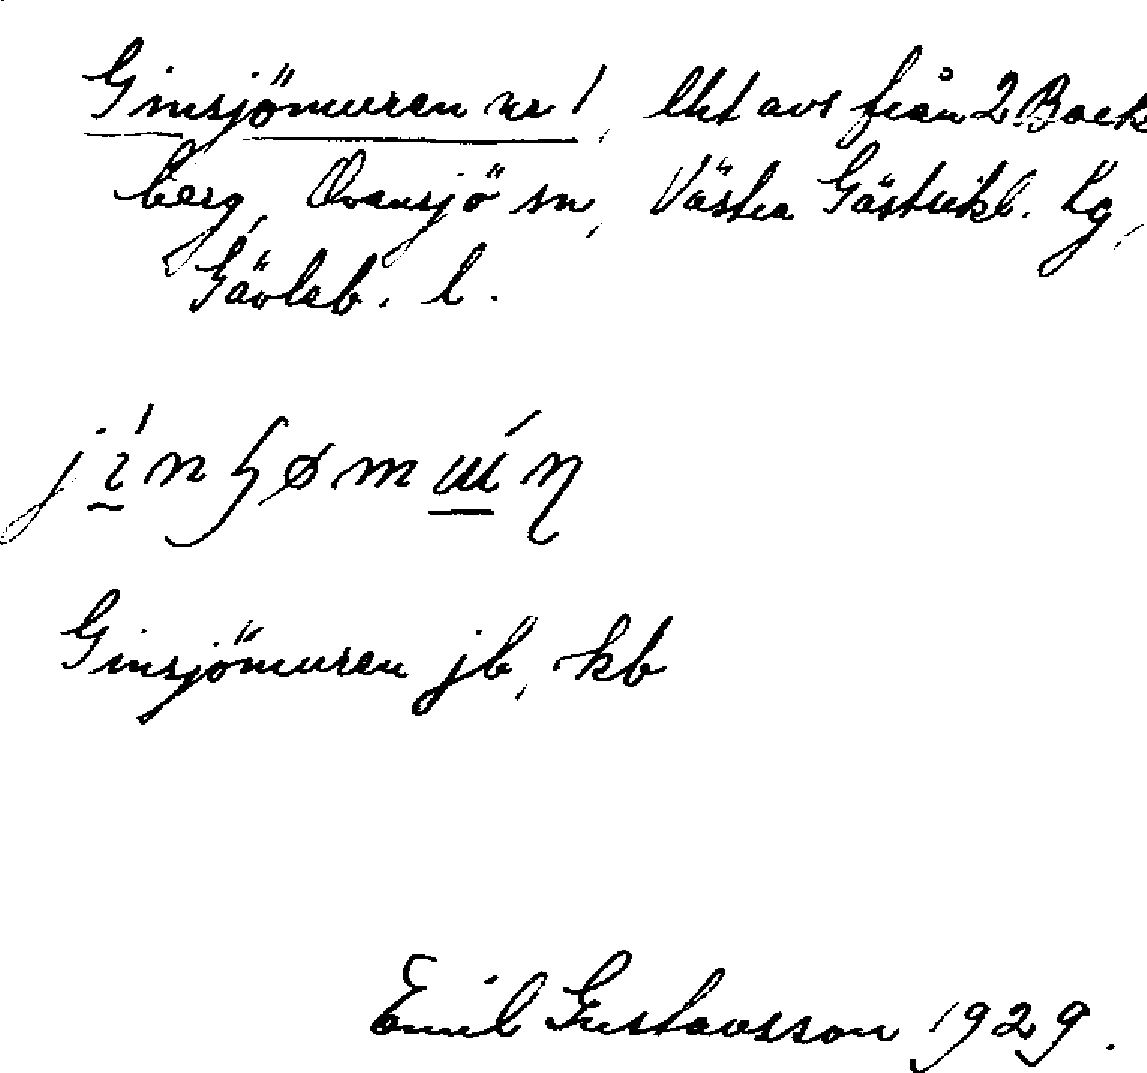 Ginsjömuren nr 1, lht avs från 2 Back
berg, Ovansjö sn, Västra Gästrikl. tg,
Gävleb. l.
Ginsjömuren jb, kb
Emil Gustavsson 1929.